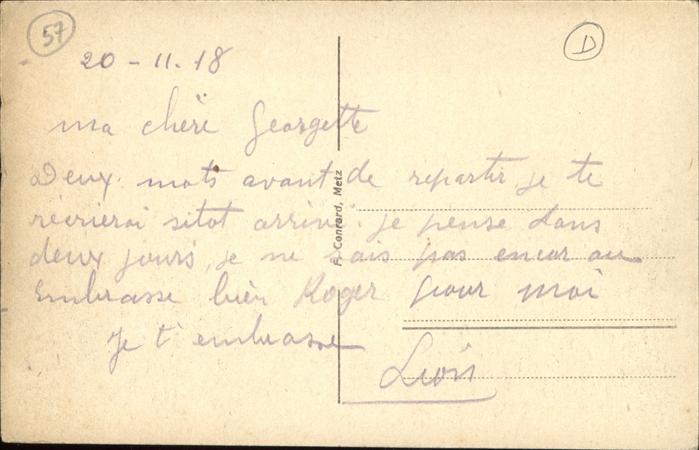 57
D
20 - 11. 18
ma chère Georgette
Deux mots avant de repartir, je te
récrierai sitot arrivé. je pense dans
deux jours, je ne sais pas encor au
Embrasse bien Roger pour moi
Je t'embrasse
P. Conrard, Metz